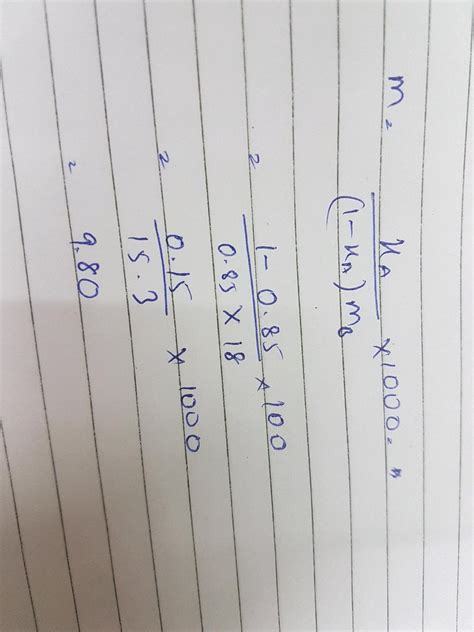 m = xA / (1-xA) mB × 1000. "
= 1 - 0.85 / 0.85 × 18 × 100
= 0.15 / 15.3 × 1000
= 9.80